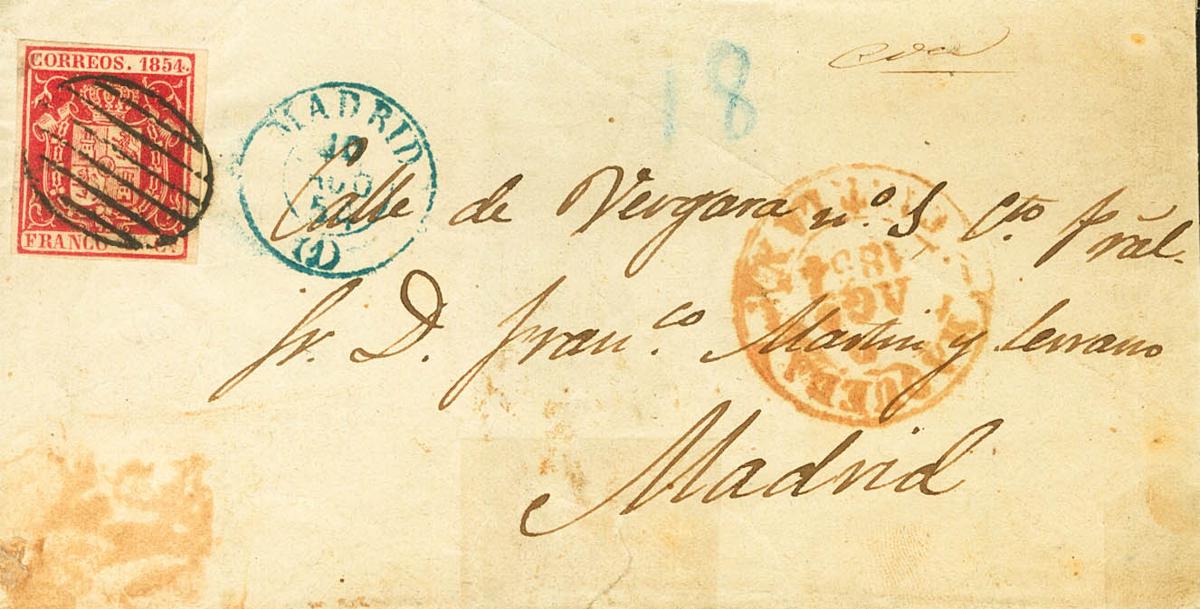 CORREOS. 1854.
FRANCO C.
MADRID
AGO
54
(1)
18
Calle de Vergara nº. 5 Cto. pral.
Sr. D. Franco. Martin y Serrano
Madrid
1854
AG